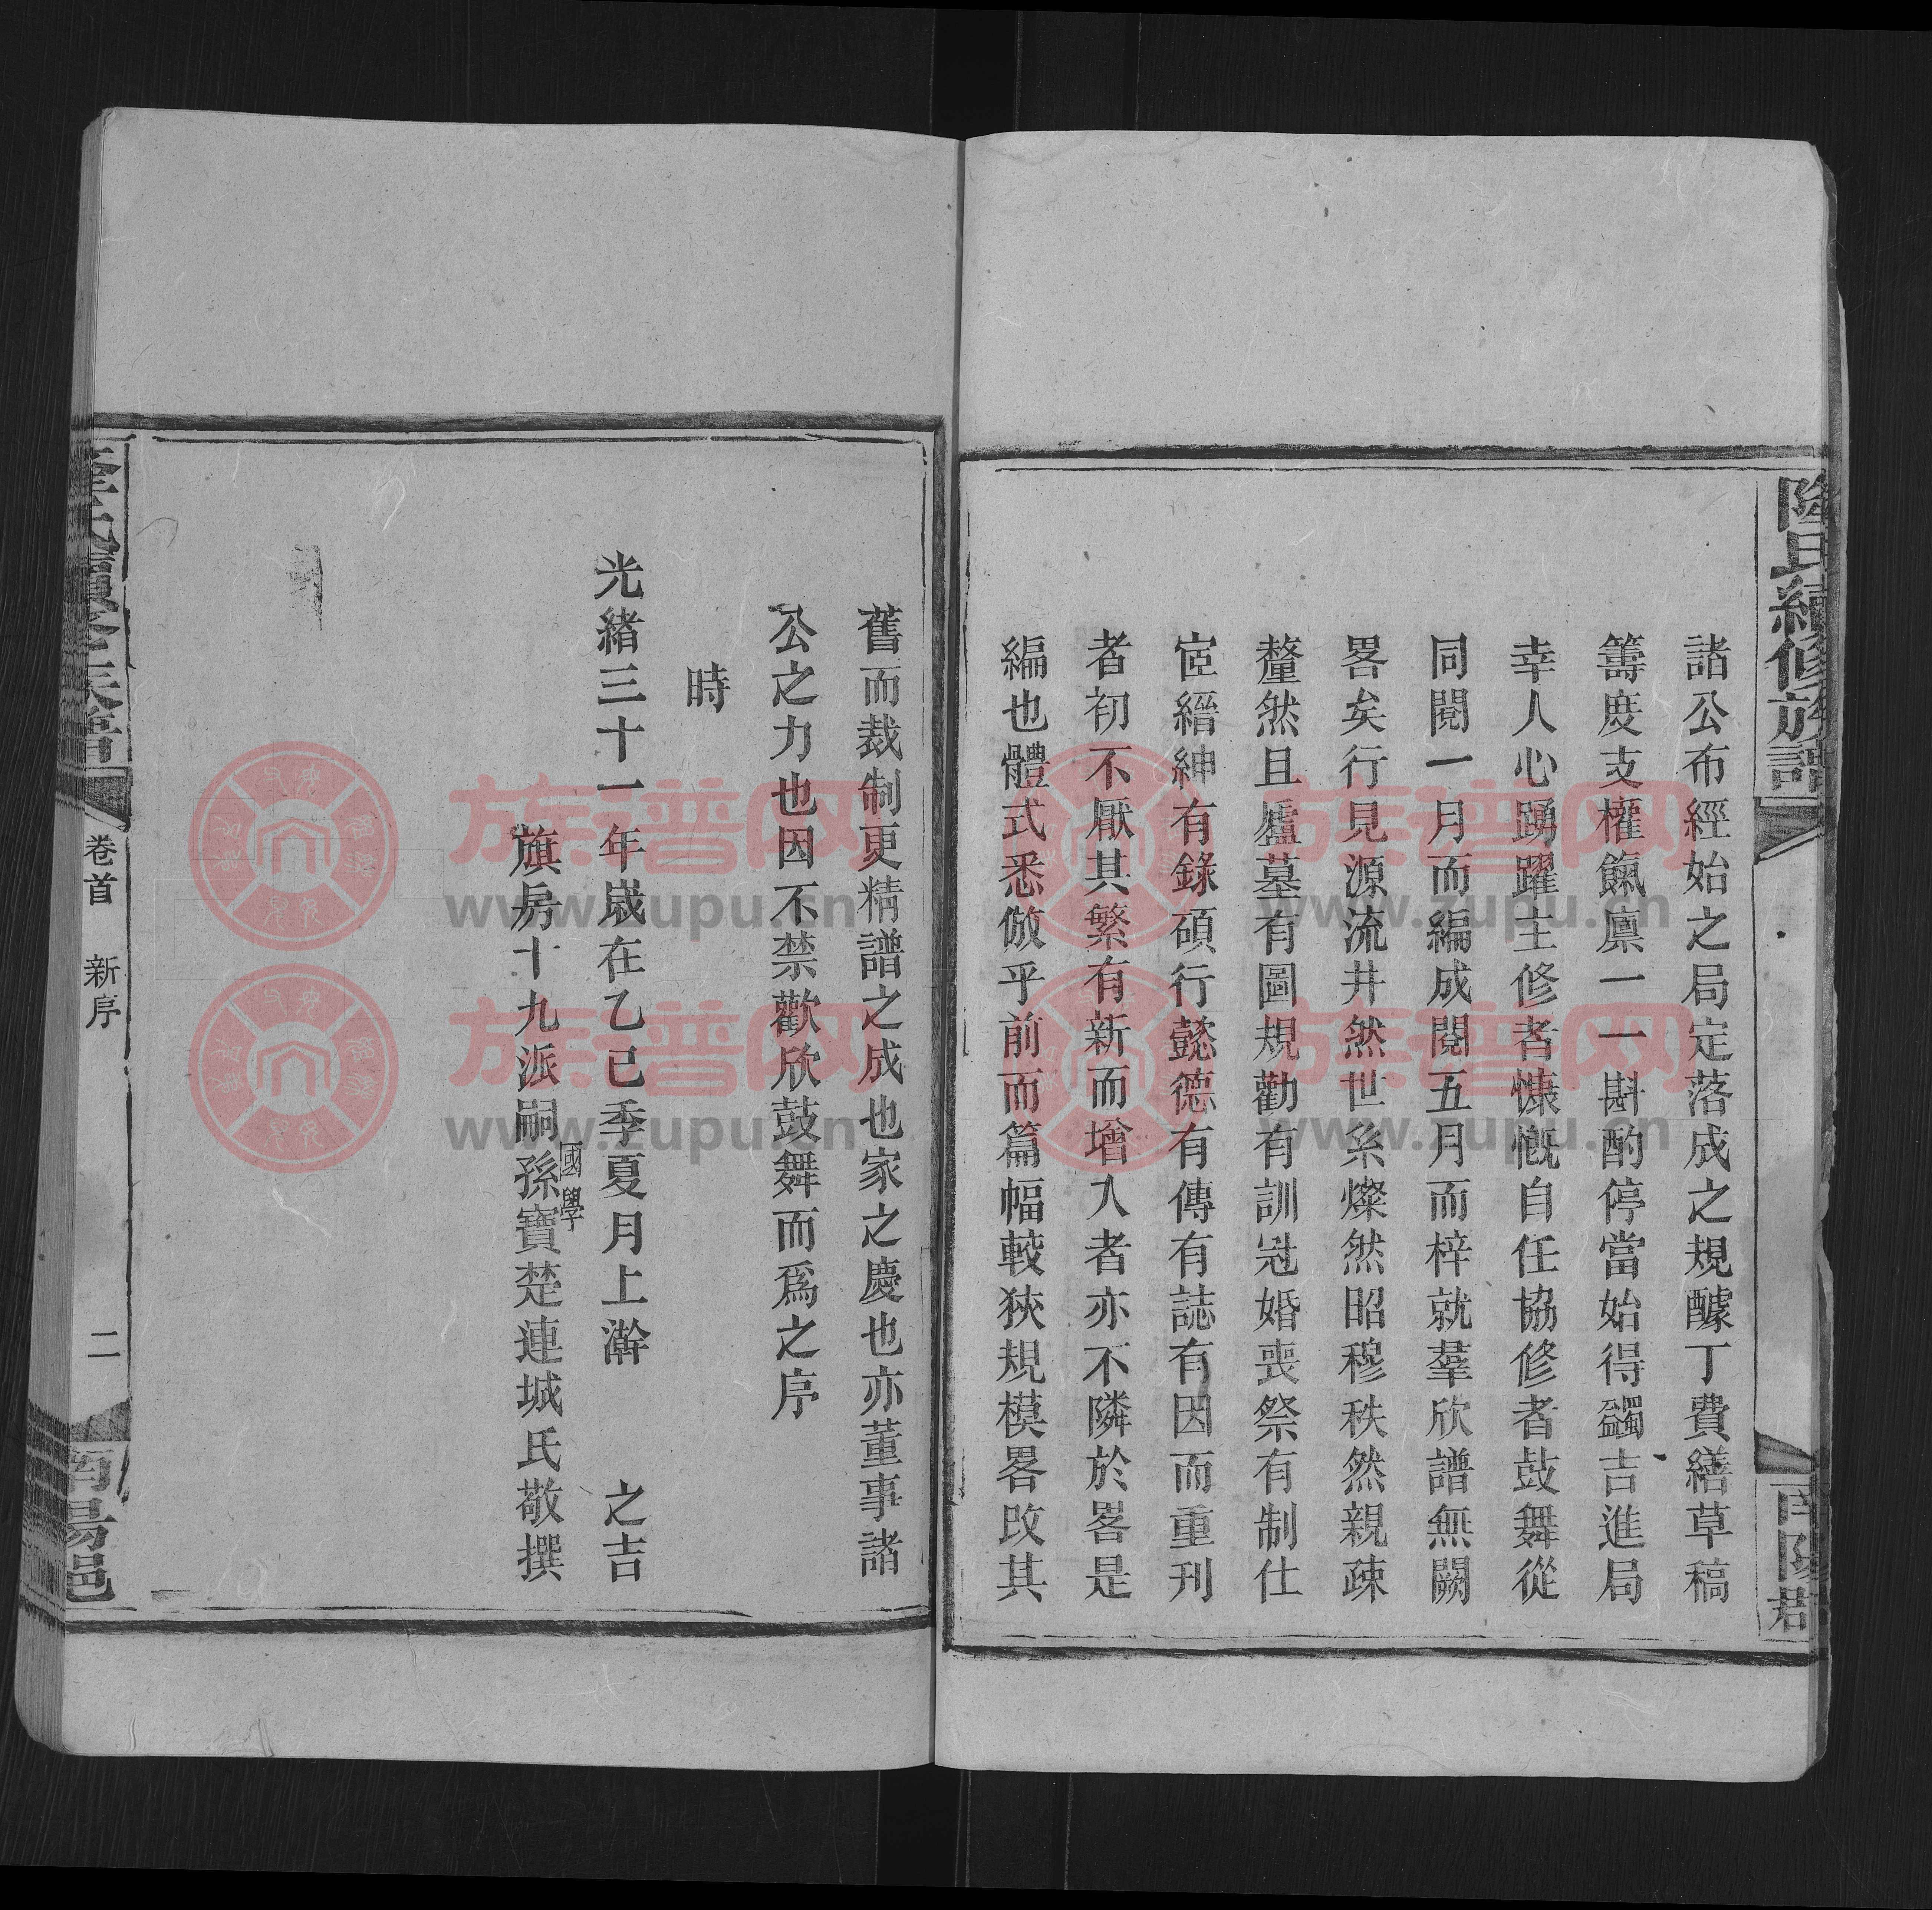 氏續修族譜
諸公布經始之局定落成之規醵丁費繕草稿
籌度支權餼廩一一斟酌停當始得蠲吉進局
幸人心踴躍主修者慷慨自任協修者鼓舞從
同閱一月而編成閱五月而梓就羣欣譜無闕
畧矣行見源流井然世系燦然昭穆秩然親疎
釐然且廬墓有圖規勸有訓冠婚喪祭有制仕
宦縉紳有錄碩行懿德有傳有誌有因而重刊
者初不厭其繁有新而增入者亦不隣於畧是
編也體式悉倣乎前而篇幅較狹規模畧改其
舊而裁制更精譜之成也家之慶也亦董事諸
公之力也因不禁歡欣鼓舞而爲之序
時
光緒三十一年歲在乙巳季夏月上澣 之吉
旗房十九派嗣孫國學寶楚連城氏敬撰
卷首 新序 二
族谱网
www.zupu.cn
族谱网
www.zupu.cn
族谱网
www.zupu.cn
族谱网
www.zupu.cn